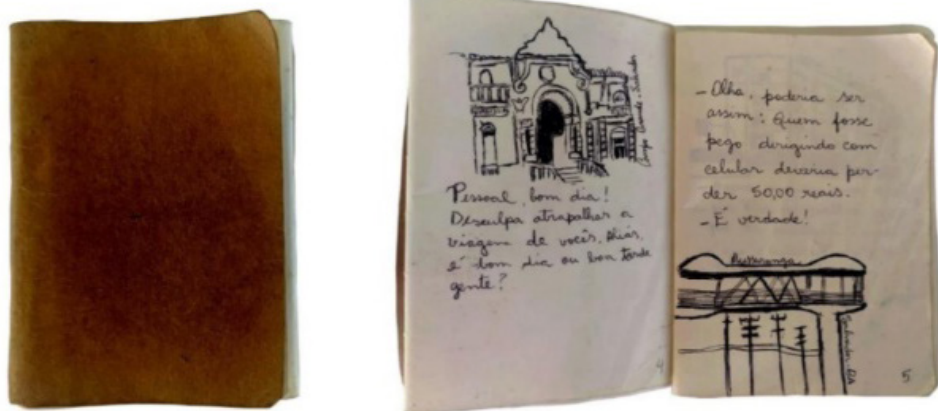 Campo Grande - Salvador
Pessoal, bom dia!
Desculpa atrapalhar a
viagem de vocês. Aliás,
é bom dia ou boa tarde
gente?
4
- Olha, poderia ser
assim: Quem fosse
pego dirigindo com
celular deveria per-
der 50,00 reais.
- É verdade!
Salvador BA
5